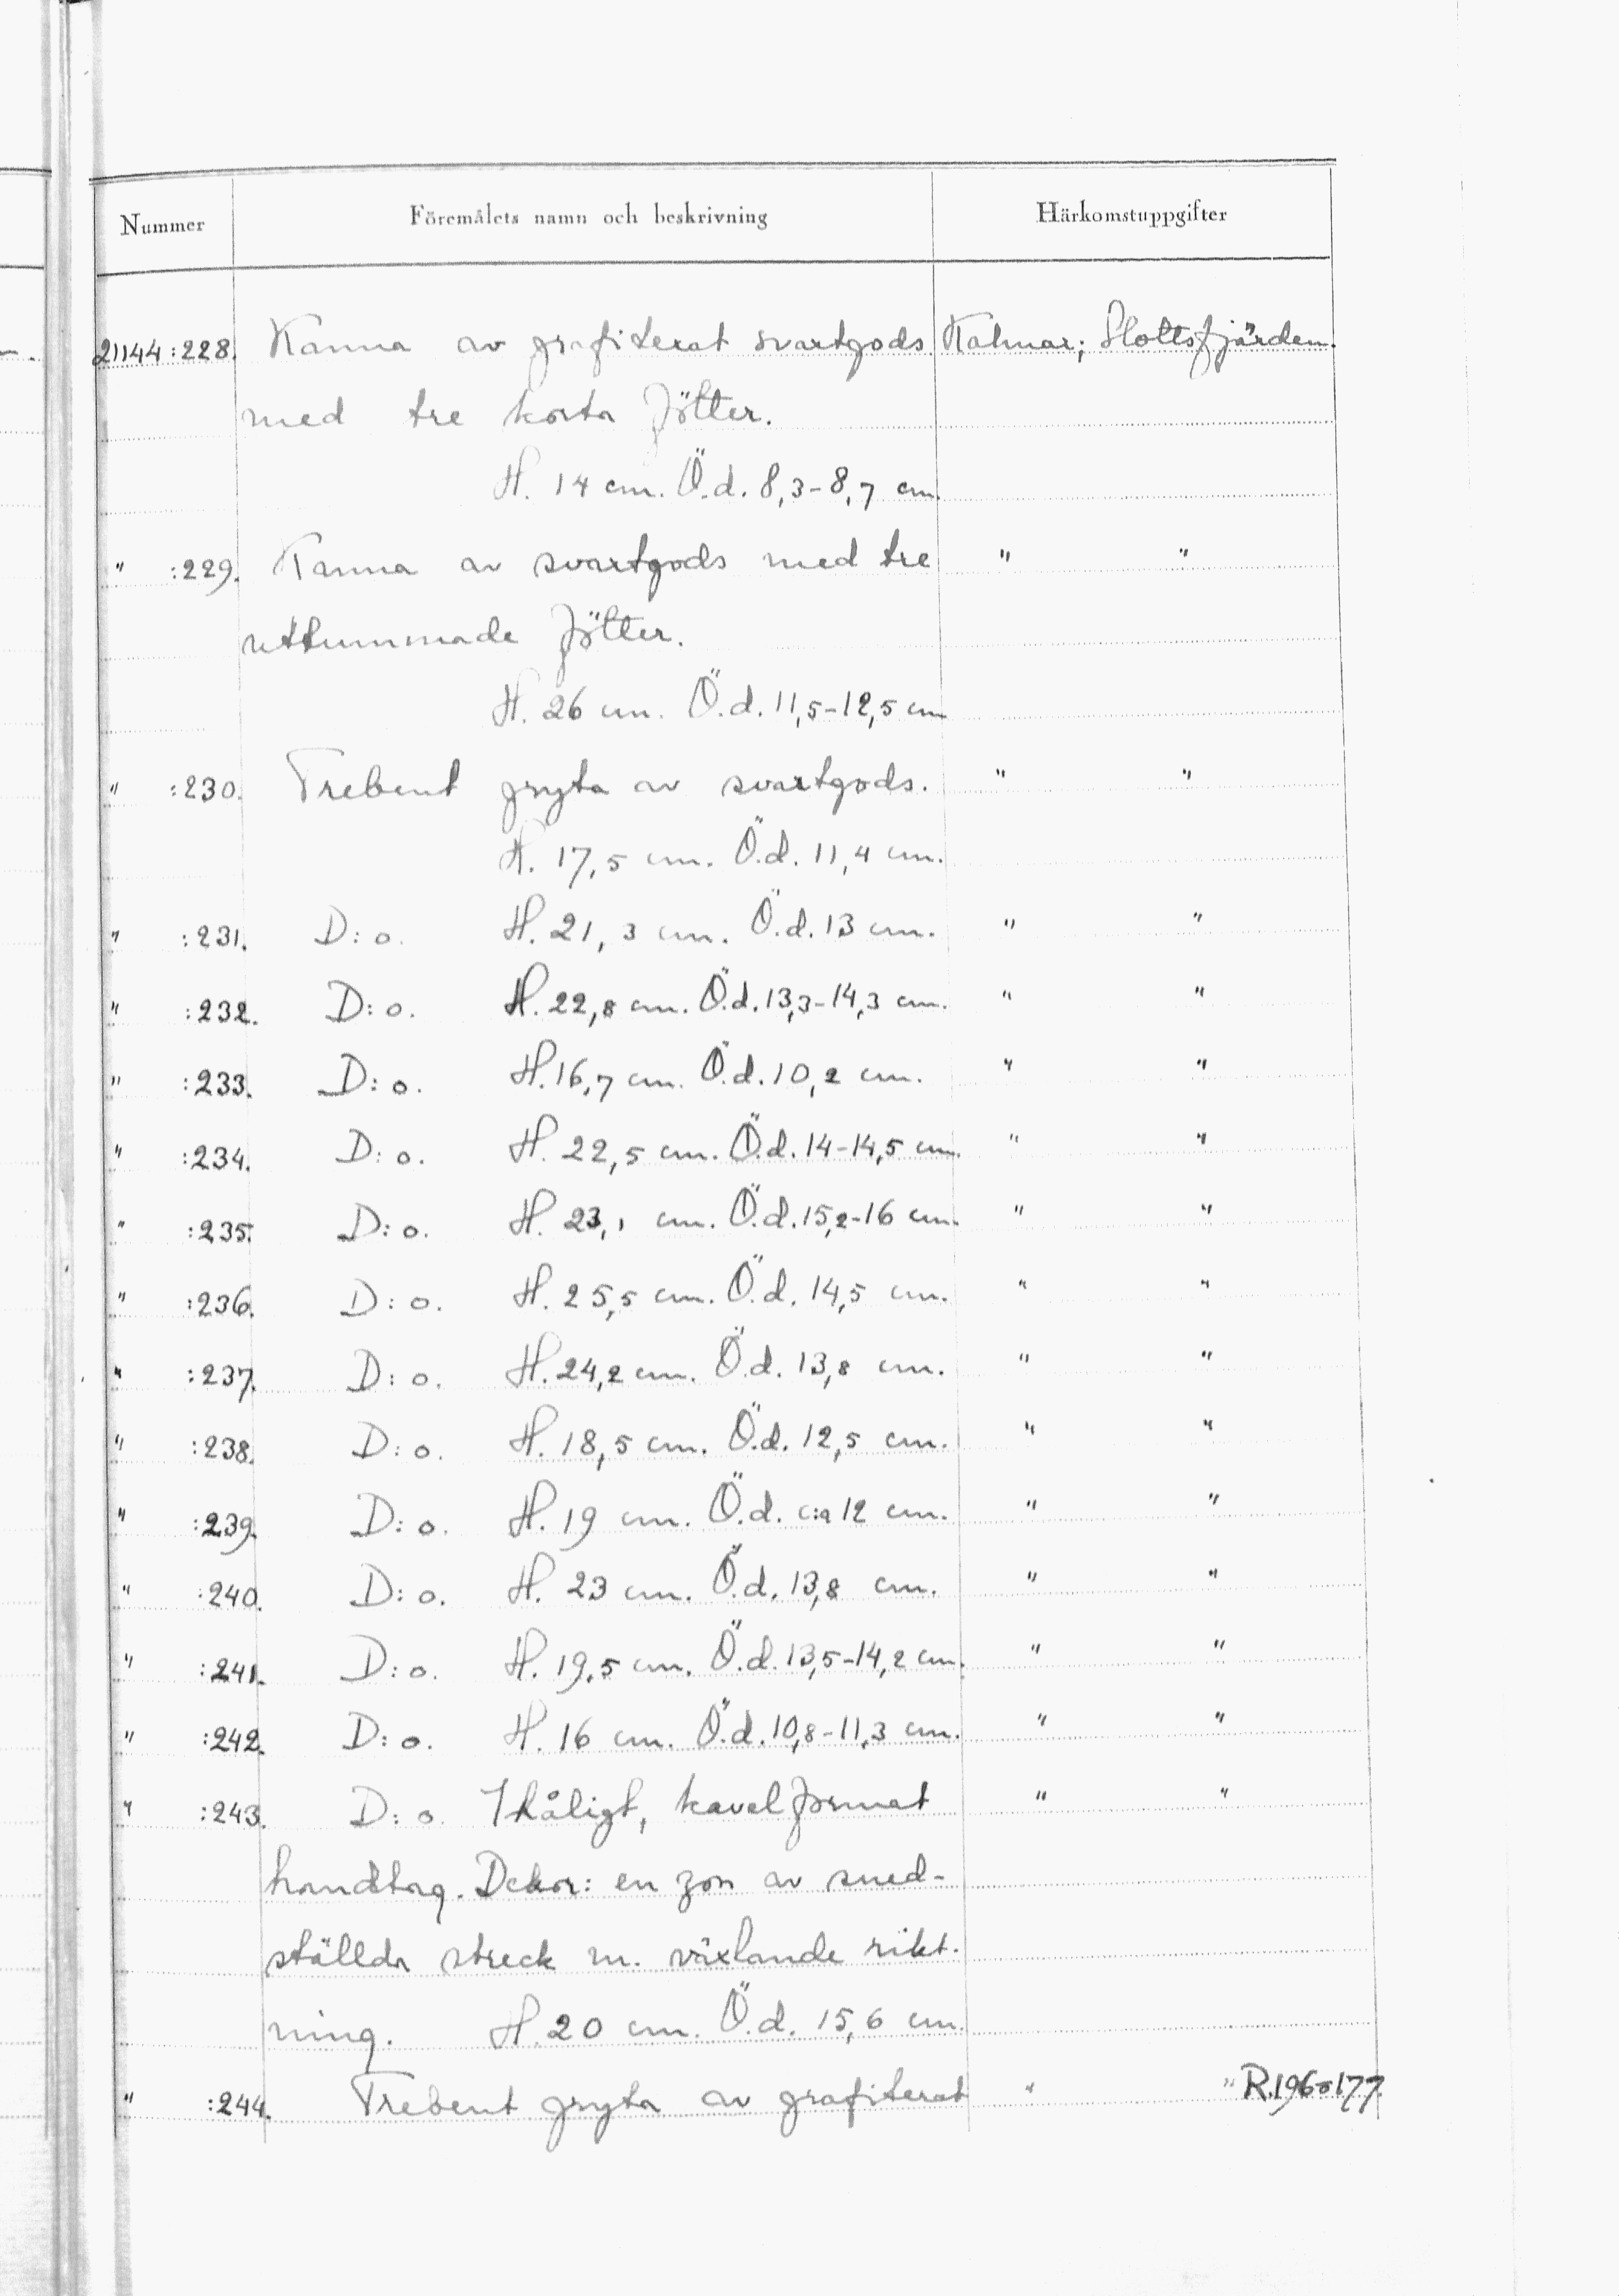 Nummer Föremålets namn och beskrivning Härkomstuppgifter
21144:228. Kanna av grafiterat svartgods Kalmar; Slottsfjärden.
med tre korta fötter.
H. 14 cm. Ö.d. 8,3-8,7 cm.
" :229. Kanna av svartgods med tre " "
uttummade fötter.
H. 26 cm. Ö.d. 11,5-12,5 cm
" :230. Trebent gryta av svartgods. " "
H. 17,5 cm. Ö.d. 11,4 cm.
" :231. D:o. H. 21,3 cm. Ö.d. 13 cm. " "
" :232. D:o. H. 22,8 cm. Ö.d. 13,3-14,3 cm. " "
" :233. D:o. H. 16,7 cm. Ö.d. 10,2 cm. " "
" :234. D:o. H. 22,5 cm. Ö.d. 14-14,5 cm. " "
" :235. D:o. H. 23,1 cm. Ö.d. 15,2-16 cm. " "
" :236. D:o. H. 25,5 cm. Ö.d. 14,5 cm. " "
" :237. D:o. H. 24,2 cm. Ö.d. 13,8 cm. " "
" :238. D:o. H. 18,5 cm. Ö.d. 12,5 cm. " "
" :239. D:o. H. 19 cm. Ö.d. c:a 12 cm. " "
" :240. D:o. H. 23 cm. Ö.d. 13,8 cm. " "
" :241. D:o. H. 19,5 cm. Ö.d. 13,5-14,2 cm. " "
" :242. D:o. H. 16 cm. Ö.d. 10,8-11,3 cm. " "
" :243. D:o. Ihåligt, kavelformat " "
handtag. Dekor: en zon av sned-
ställda streck m. växlande rikt-
ning. H. 20 cm. Ö.d. 15,6 cm.
" :244. Trebent gryta av grafiterat " " R.196-177.